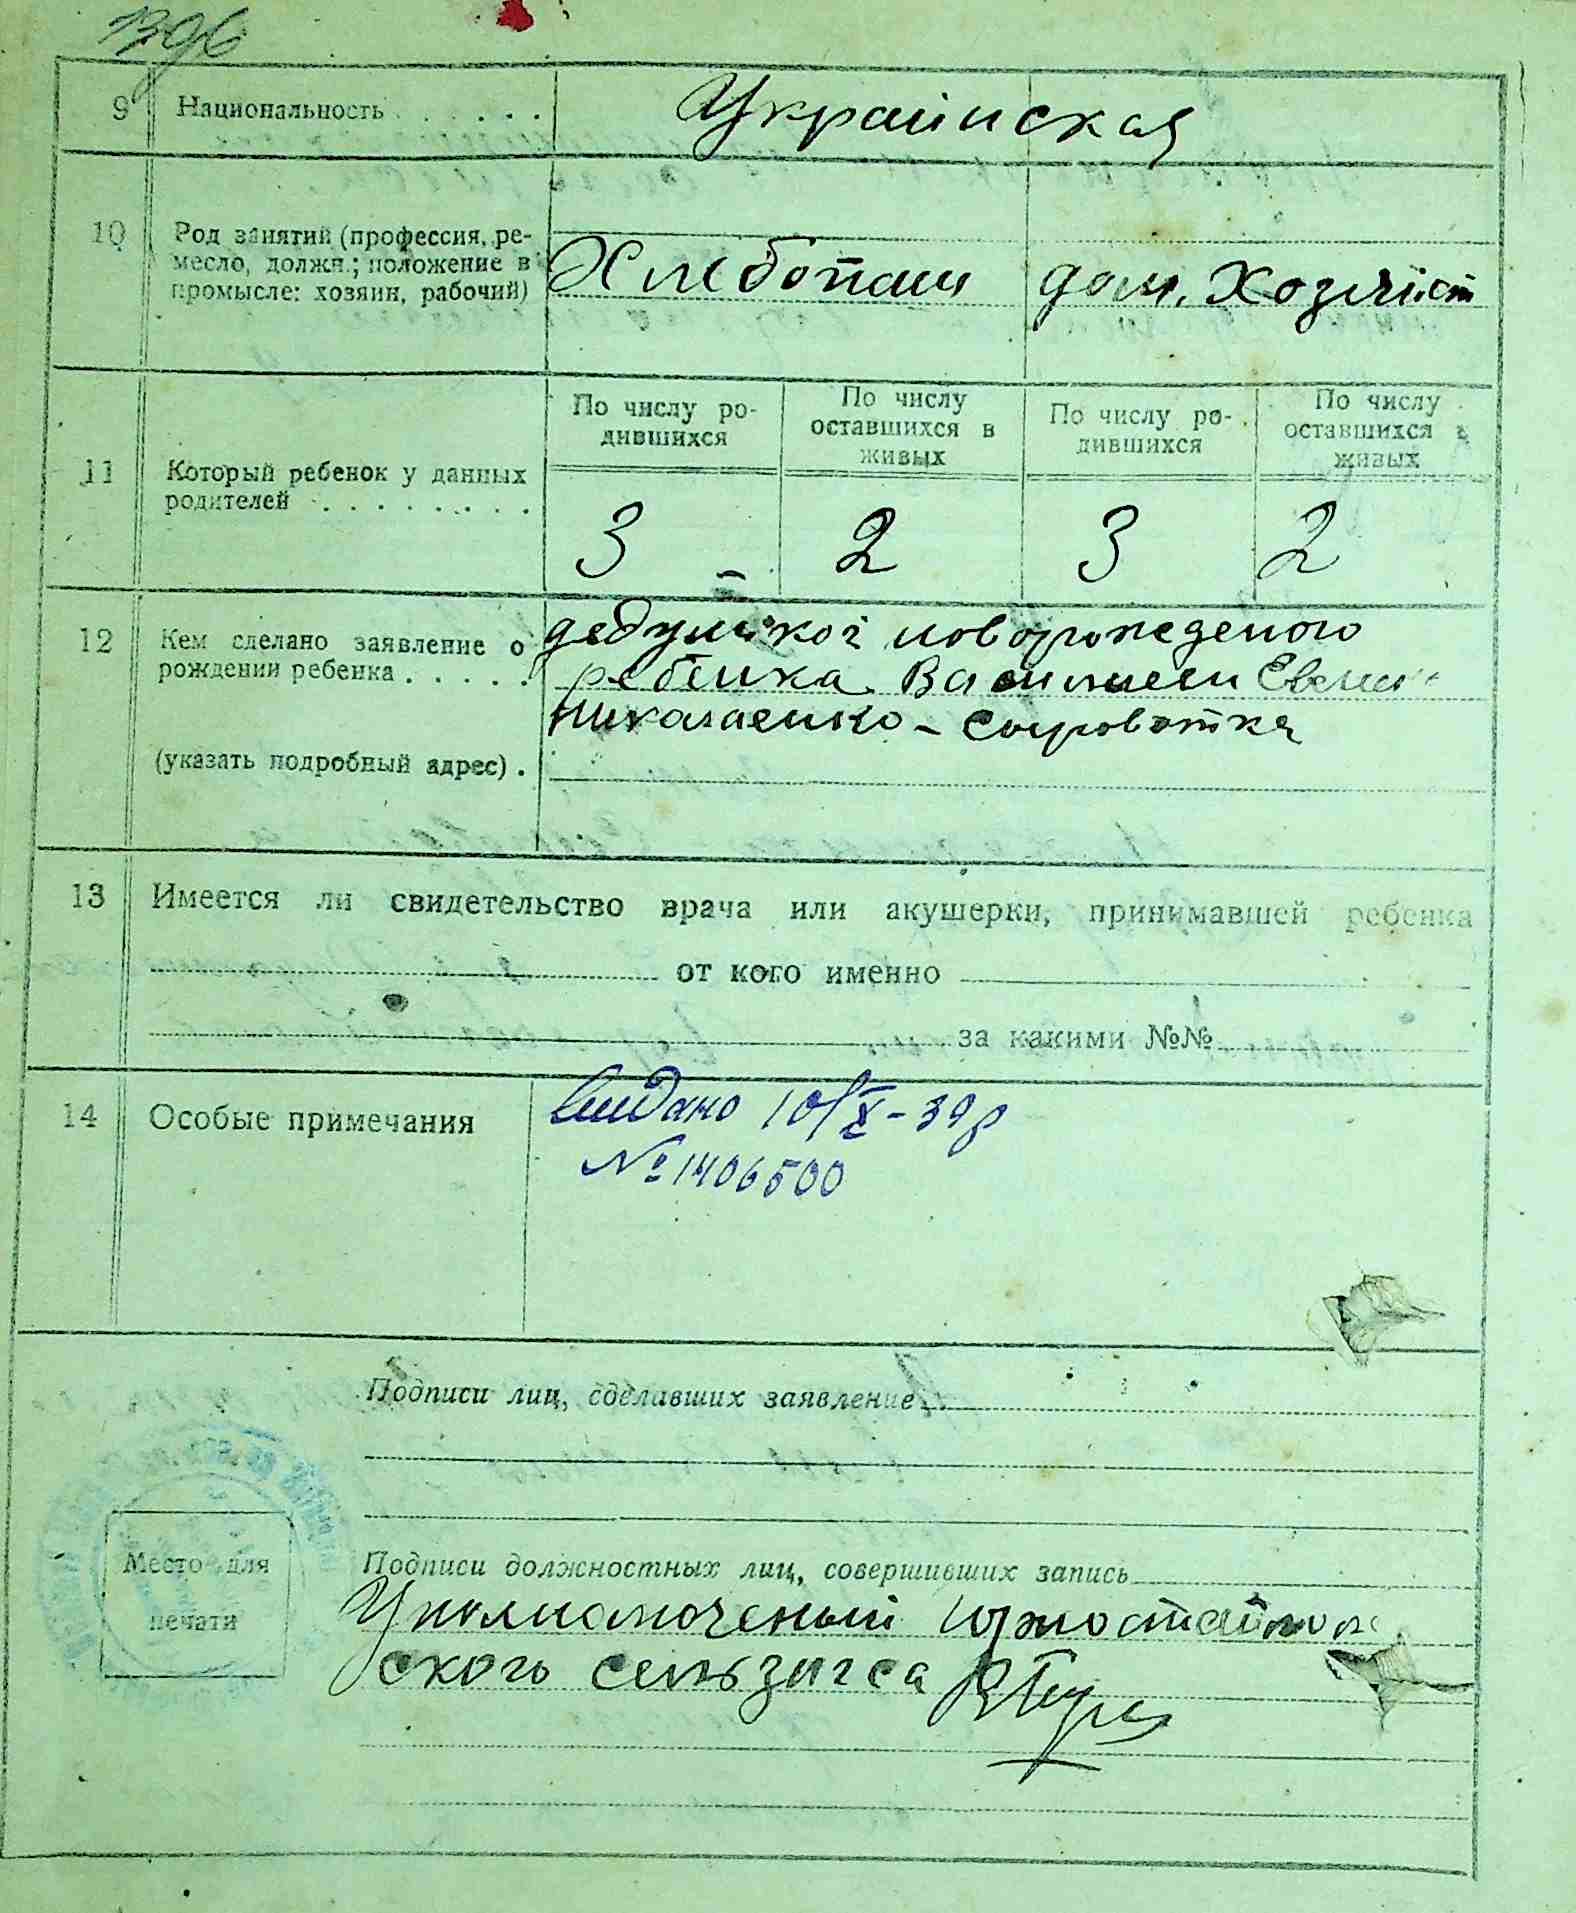 1396
9 Национальность . . . . . . Украинская
10 Род занятий (профессия, ре-
месло, должн.; положение в
промысле: хозяин, рабочий)
Хлебопаш дом. Хозяйст
11 Который ребенок у данных
родителей . . . . . . . .
По числу ро-
дившихся
По числу
оставшихся в
живых
По числу ро-
дившихся
По числу
оставшихся в
живых
3 - 2 3 2
12 Кем сделано заявление о
рождении ребенка . . . . .
(указать подробный адрес) .
дедушкой новорожденого
ребенка Василием
Николаенко - Сыроватка
13 Имеется ли свидетельство врача или акушерки, принимавшей ребенка
от кого именно
за какими №№
14 Особые примечания
Видано 10/X-39р
№ 1406500
Подписи лиц, сделавших заявление
Место для
печати
Подписи должностных лиц, совершивших запись
Уполномоченый
ского сельзагса